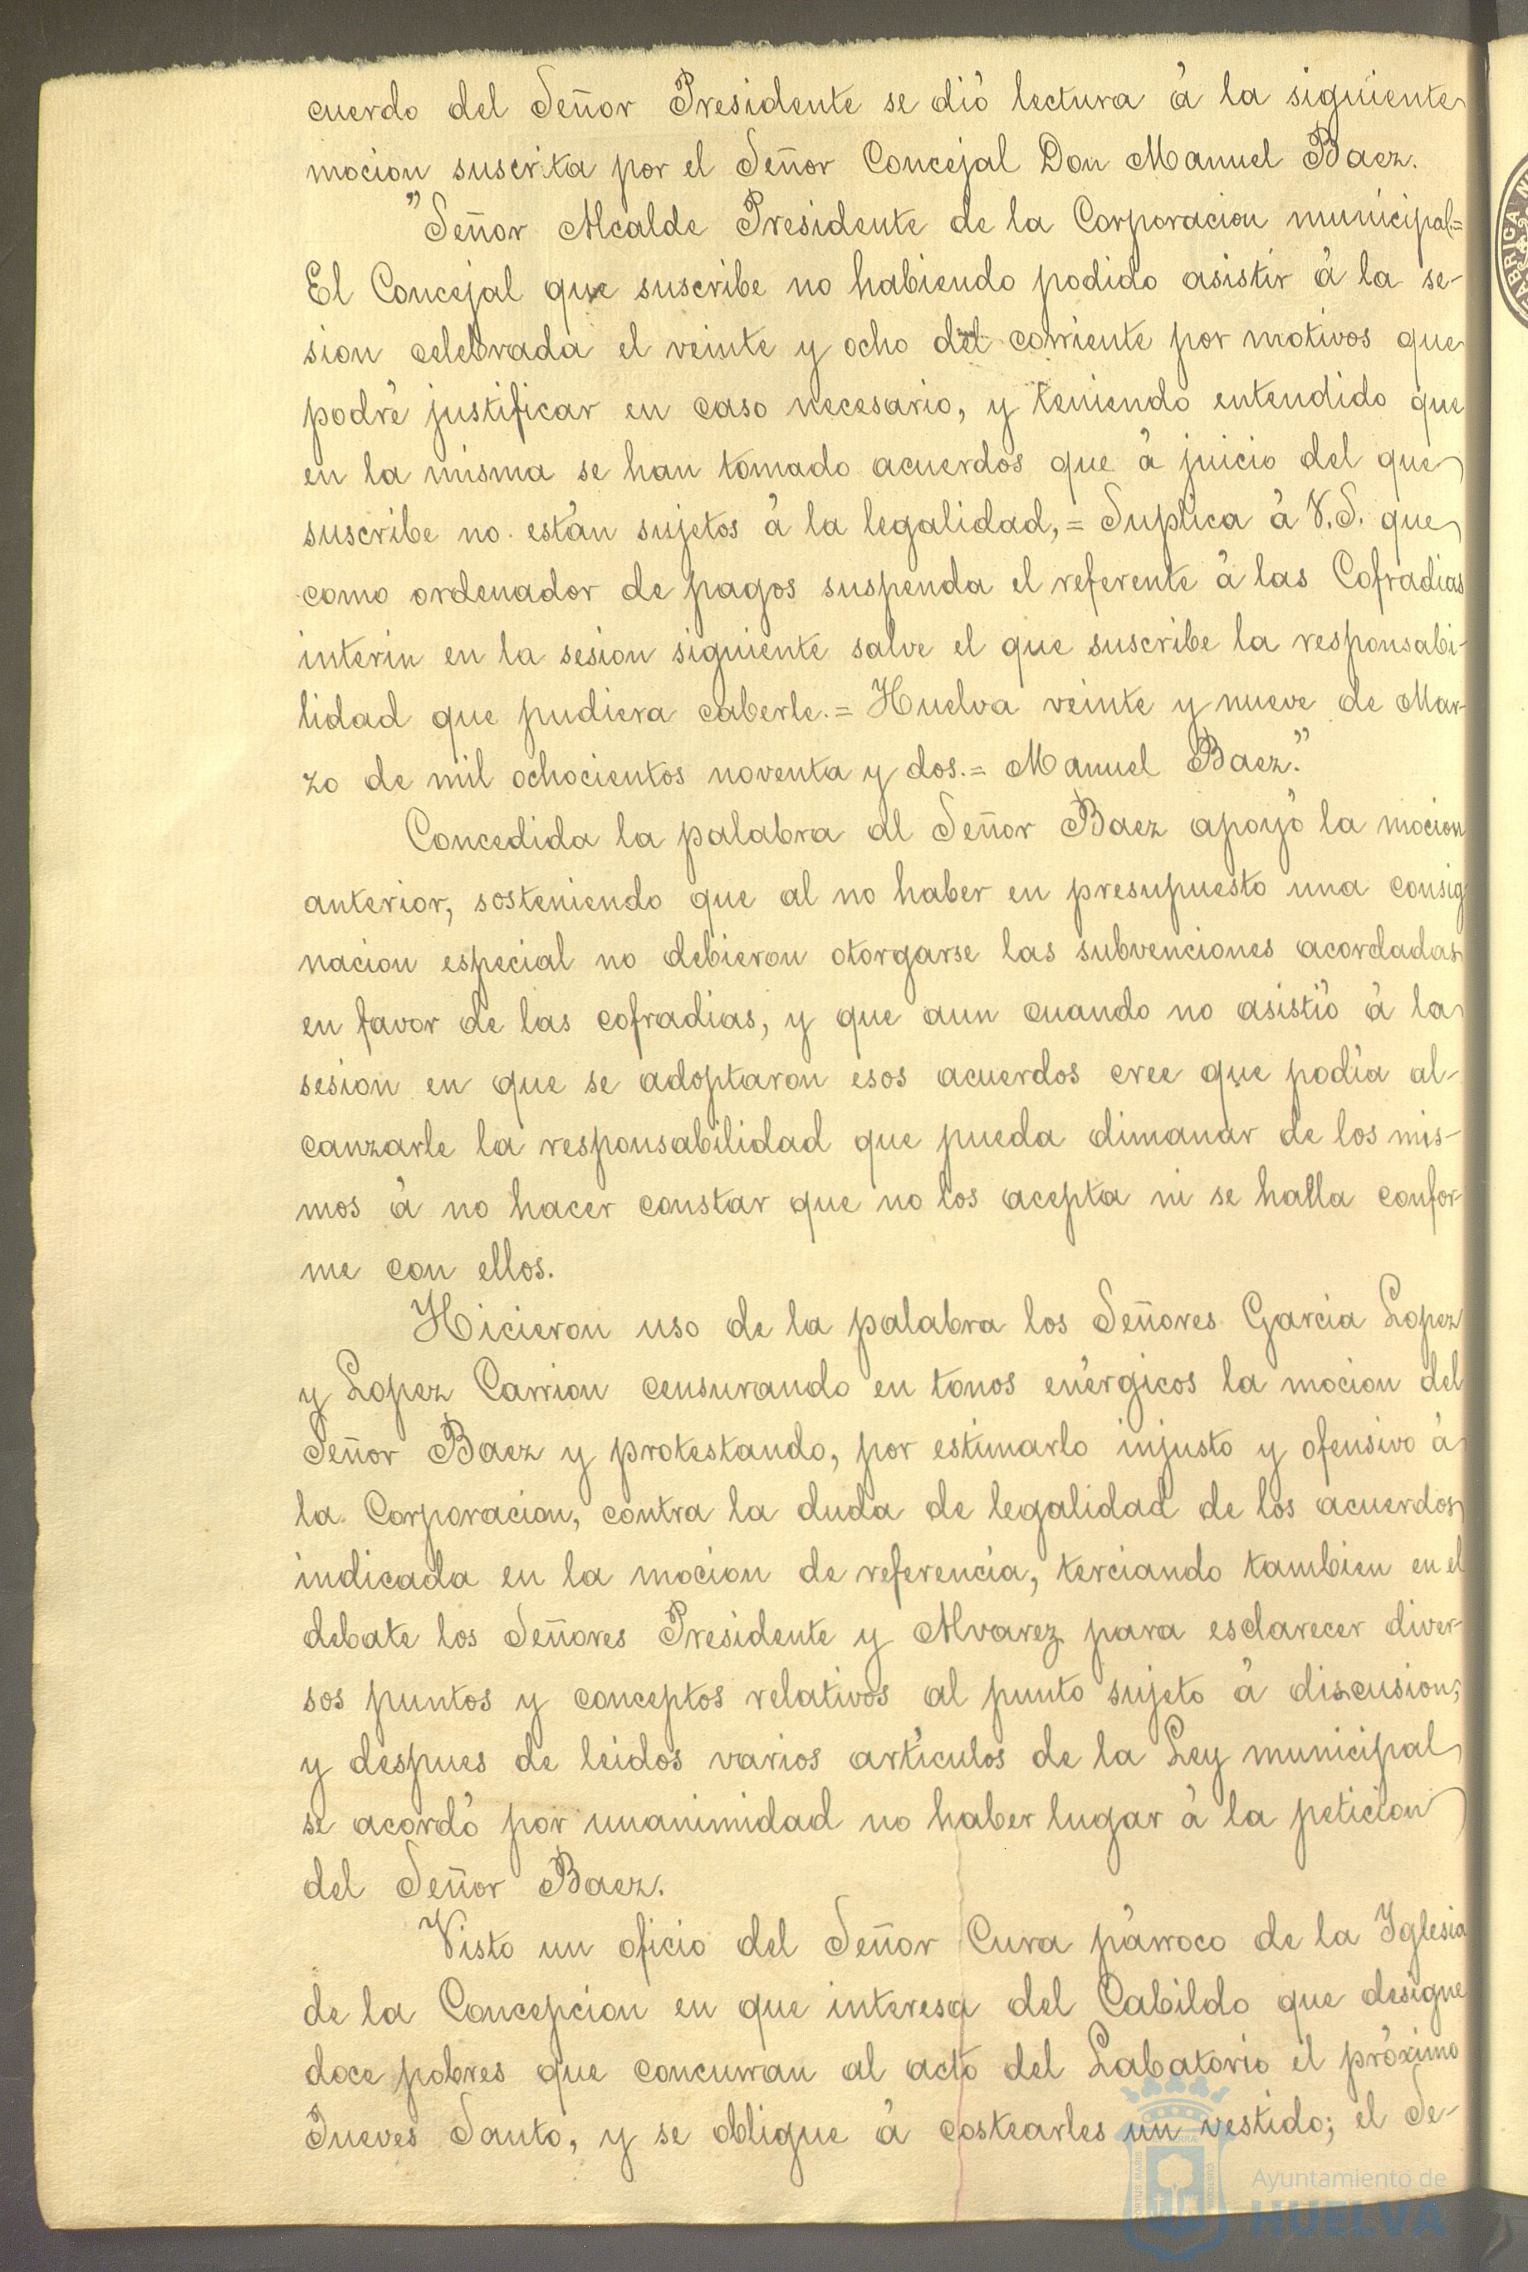 cuerdo del Señor Presidente se dió lectura á la siguiente
mocion suscrita por el Señor Concejal Don Manuel Baez.
"Señor Alcalde Presidente de la Corporacion municipal.=
El Concejal que suscribe no habiendo podido asistir á la se-
sion celebrada el veinte y ocho del corriente por motivos que
podré justificar en caso necesario, y teniendo entendido que
en la misma se han tomado acuerdos que á juicio del que
suscribe no están sujetos á la legalidad,= Suplica á V.S. que
como ordenador de pagos suspenda el referente á las Cofradias
interin en la sesion siguiente salve el que suscribe la responsabi-
lidad que pudiera caberle.= Huelva veinte y nueve de Mar-
zo de mil ochocientos noventa y dos.= Manuel Baez."
Concedida la palabra al Señor Baez apoyó la mocion
anterior, sosteniendo que al no haber en presupuesto una consig
nacion especial no debieron otorgarse las subvenciones acordadas
en favor de las cofradias, y que aun cuando no asistió á la
sesion en que se adoptaron esos acuerdos cree que podía al-
canzarle la responsabilidad que pueda dimanar de los mis-
mos á no hacer constar que no los acepta ni se halla confor
me con ellos.
Hicieron uso de la palabra los Señores García Lopez
y Lopez Carrion censurando en tonos enérgicos la mocion del
Señor Baez y protestando, por estimarlo injusto y ofensivo á
la Corporacion, contra la duda de legalidad de los acuerdos
indicada en la mocion de referencia, terciando tambien en el
debate los Señores Presidente y Alvarez para esclarecer diver-
sos puntos y conceptos relativos al punto sujeto á discusion;
y despues de leidos varios artículos de la Ley municipal
se acordó por unanimidad no haber lugar á la peticion
del Señor Baez.
Visto un oficio del Señor Cura párroco de la Iglesia
de la Concepcion en que interesa del Cabildo que designe
doce pobres que concurran al acto del Labatorio el próximo
Jueves Santo, y se obligue á costearles un vestido; el Se-
Ayuntamiento de
HUELVA